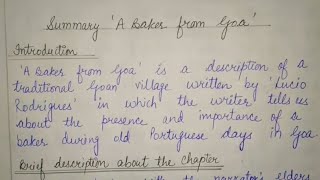 Summary 'A Baker from Goa'
Introduction
'A Baker from Goa' is a description of a
traditional Goan village written by 'Lucio
Rodrigues' in which the writer tells us
about the presence and importance of a
baker during old Portuguese days in Goa
Brief description about the Chapter
with the narrator's elders